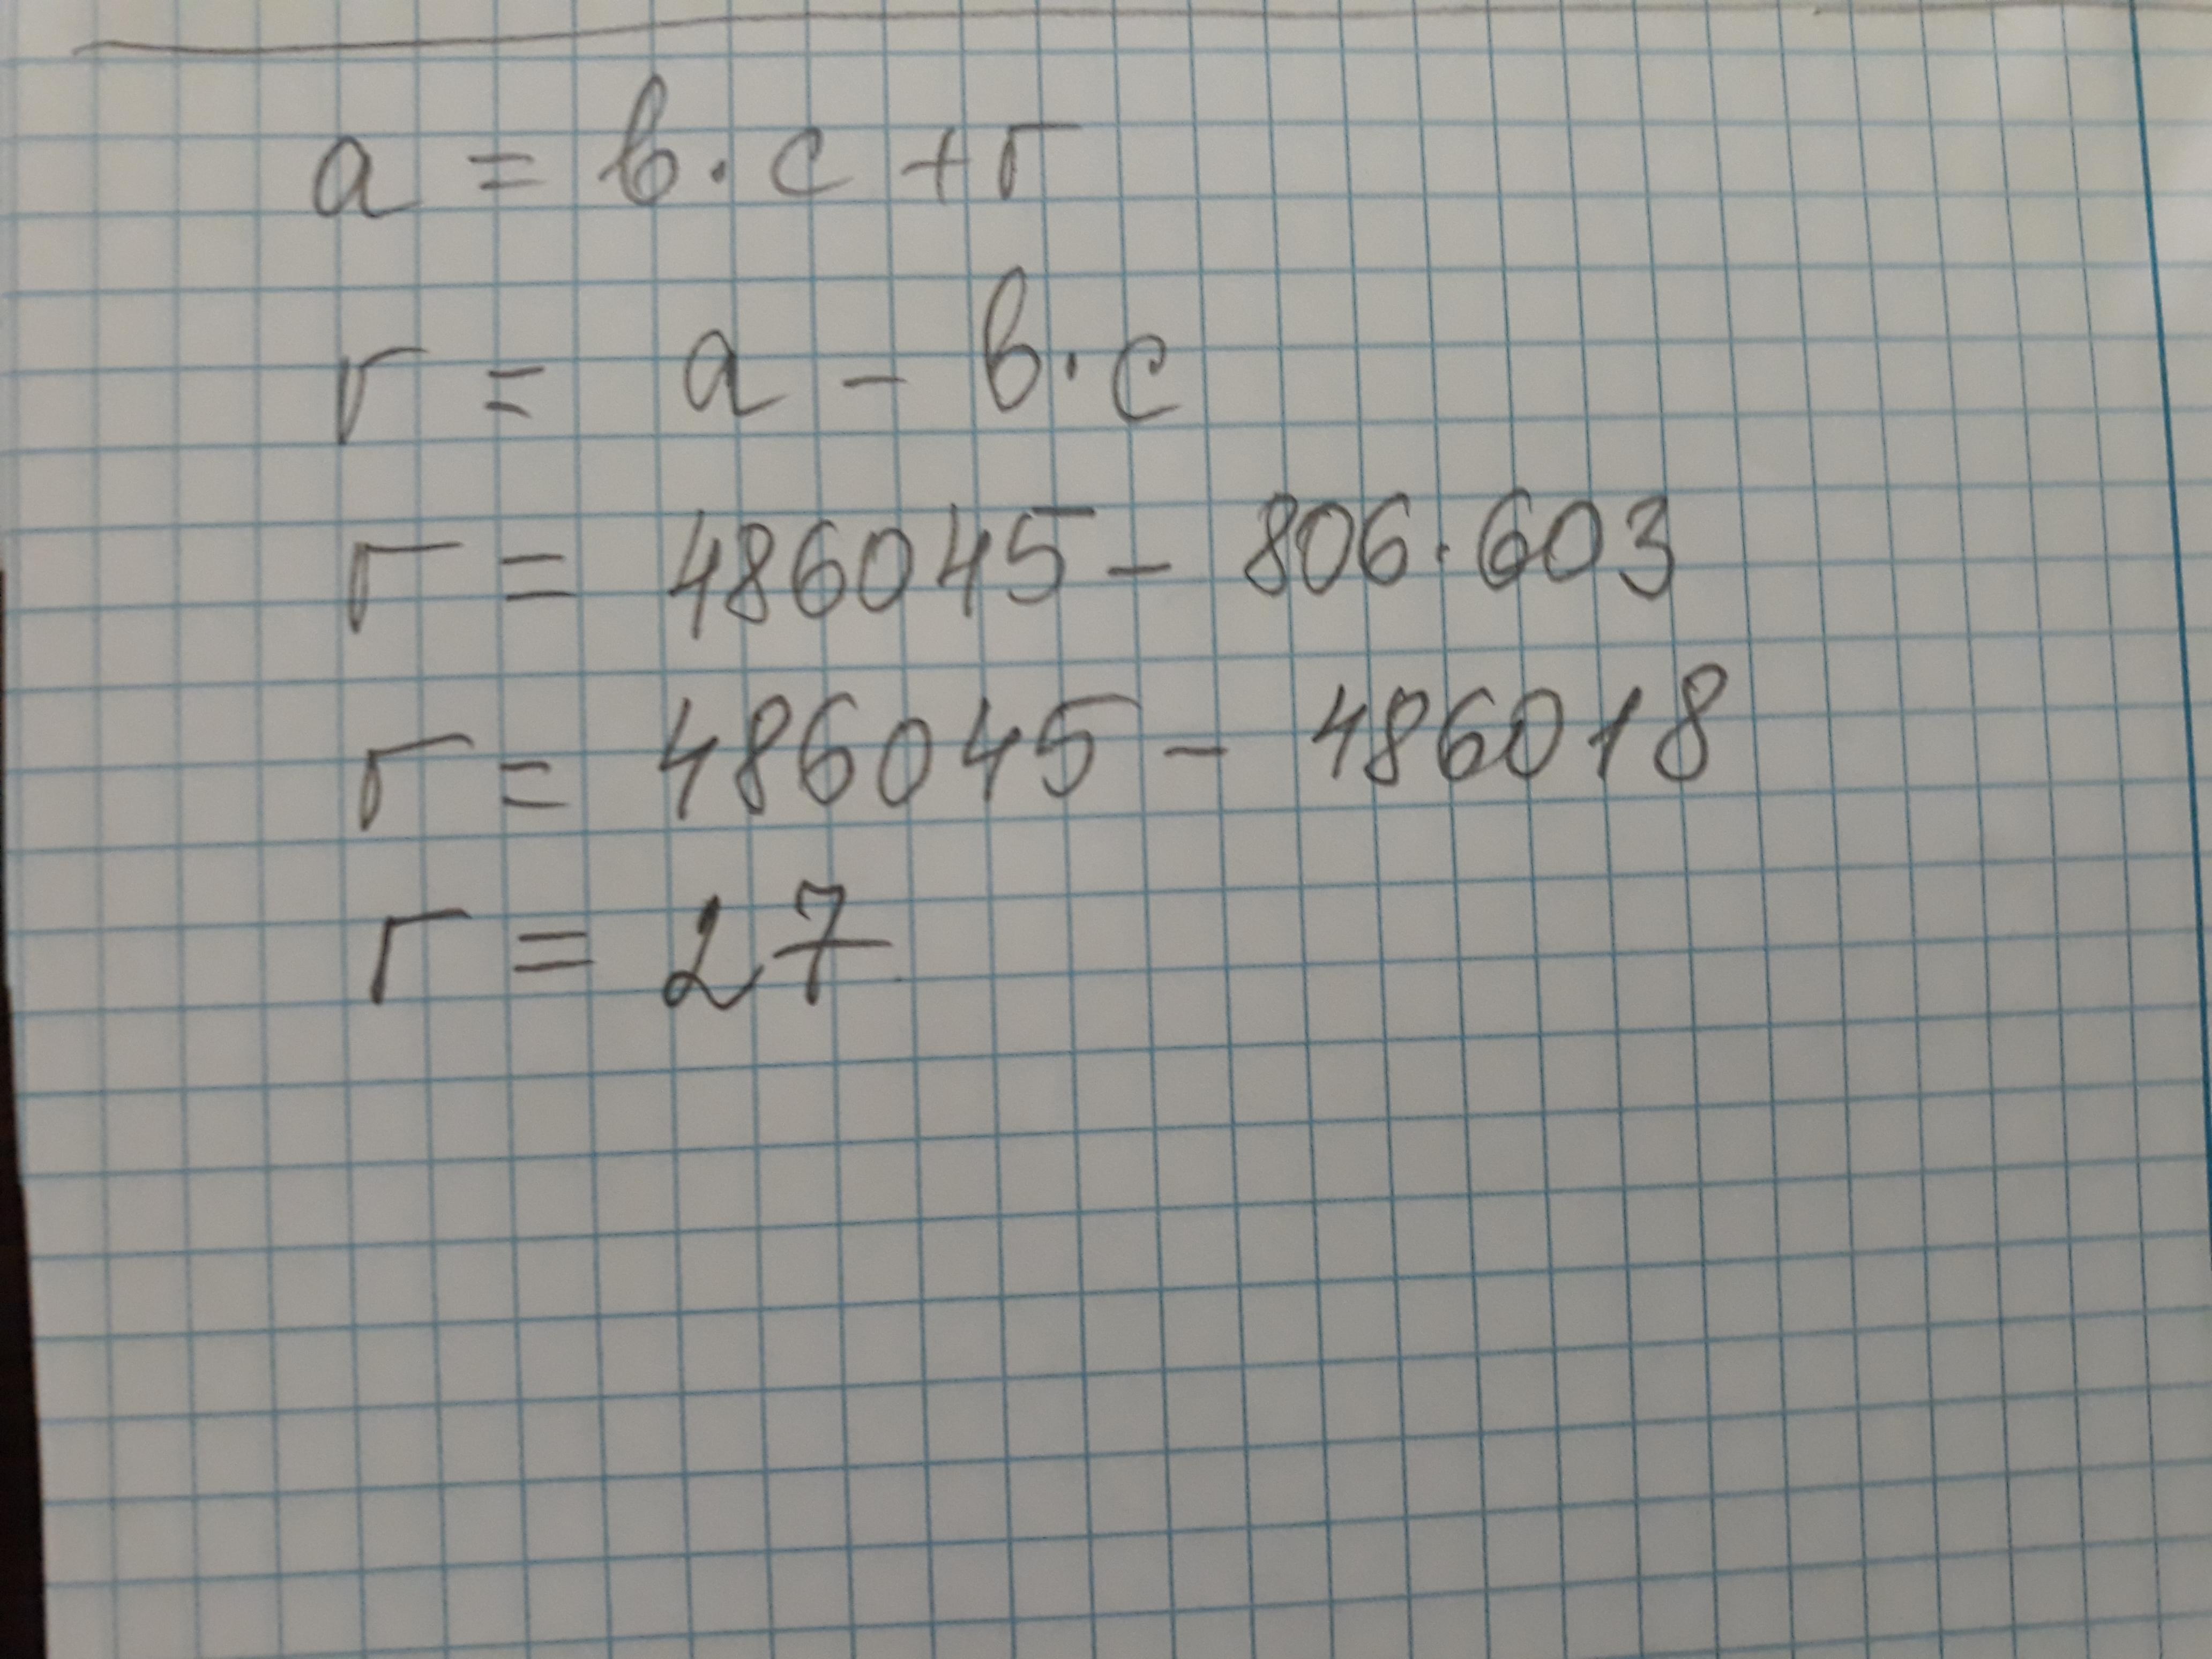 a = b · c + r
r = a - b · c
r = 486045 - 806 · 603
r = 486045 - 486018
r = 27